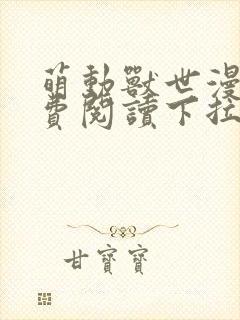 萌動獸世漫
費閱讀下拉
甘寶寶